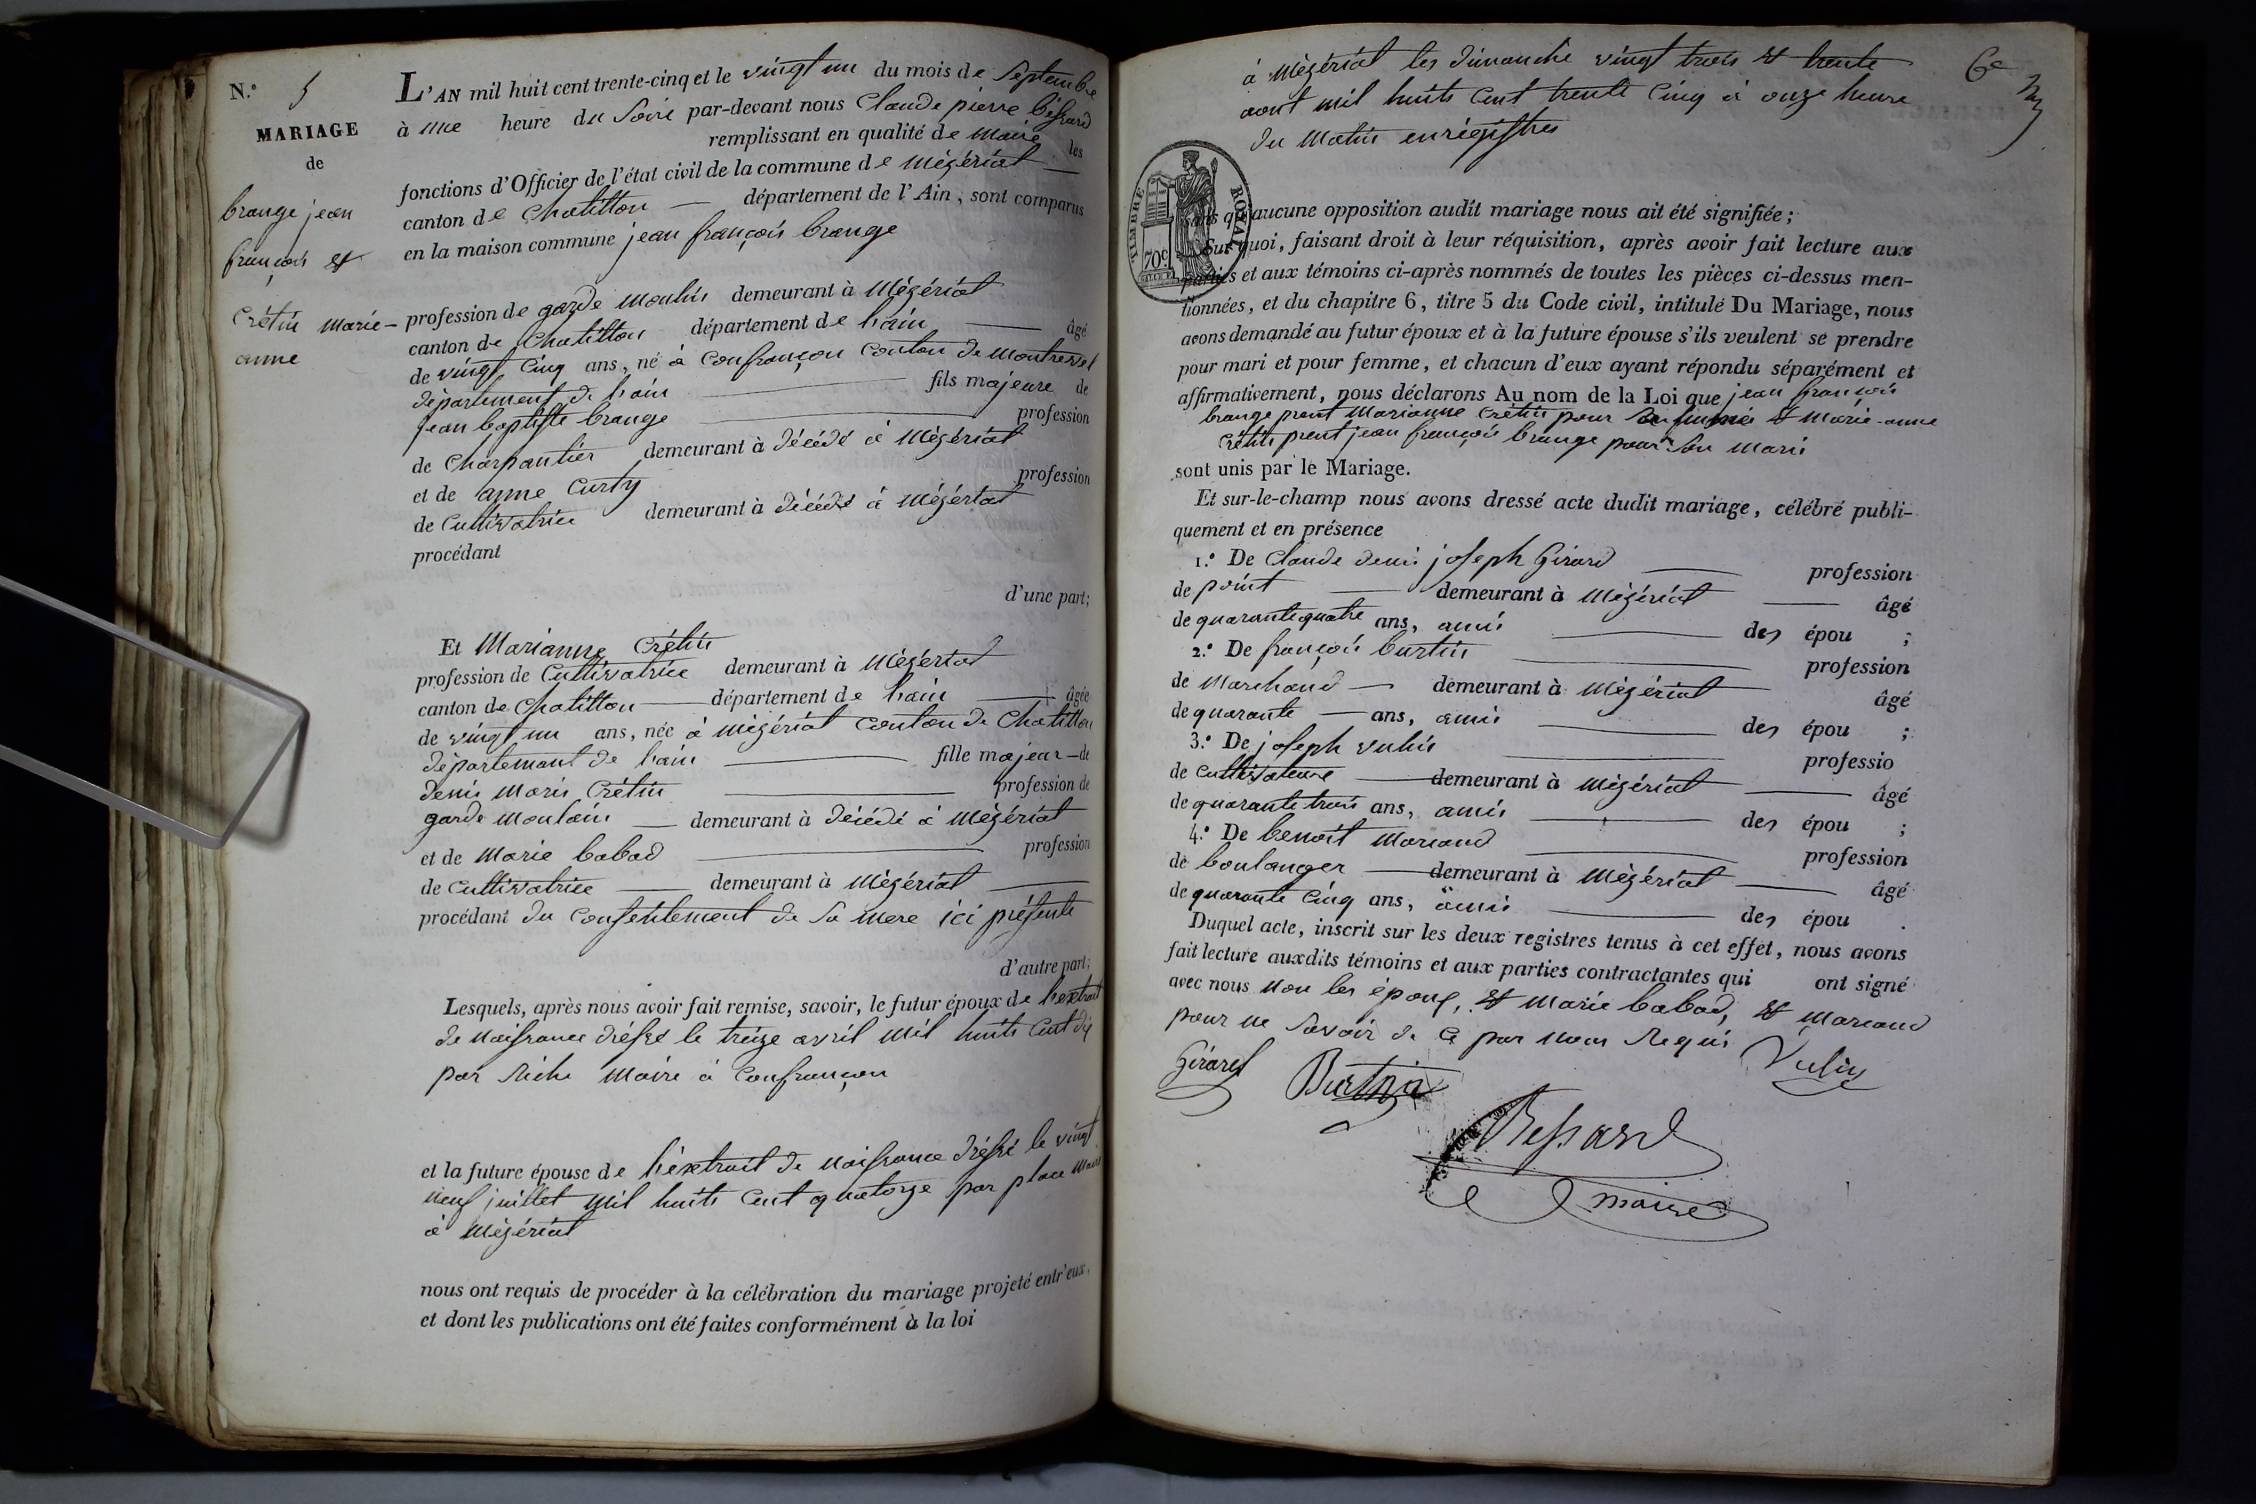 N.° 5
MARIAGE
de
brange jean
françois et
Crétin marie-
anne
L'AN mil huit cent trente-cinq et le vingt un du mois de Septembre
à une heure du Soire par-devant nous Claude pierre béssard
remplissant en qualité de maire les
fonctions d'Officier de l'état civil de la commune de mézériat
canton de Chatillon département de l'Ain, sont comparus
en la maison commune jean françois brange
profession de garde moulin demeurant à Mézériat
canton de Chatillon département de l'ain âgé
de vingt Cinq ans, né à Confrançon Canton de Montrevel
département de l'ain fils majeure de
jean baptiste brange profession
de Charpantier demeurant à décédé à Mézériat
et de anne Curty profession
de Cultivatrice demeurant à décédé à mézériat
procédant
d'une part;
Et Marianne Crétin
profession de Cultivatrice demeurant à Mézériat
canton de Chatillon département de l'ain âgée
de vingt un ans, née à mézériat Canton de Chatillon
département de l'ain fille majeur de
denis maris Crétin profession de
garde moulain demeurant à décédé à Mézériat
et de Marie babad profession
de Cultivatrice demeurant à Mézériat
procédant du Consentement de Sa mere ici présente
d'autre part;
Lesquels, après nous avoir fait remise, savoir, le futur époux de l'extrait
de naissance dréssé le treize avril mil huits Cent dix
par Riche Maire à Confrançon
et la future épouse de l'éxtrait de naissance dréssé le vingt
neuf juillet mil huits Cent quatorze par place Maire
à Mézériat
nous ont requis de procéder à la célébration du mariage projeté entr'eux,
et dont les publications ont été faites conformément à la loi
6e
à Mézériat les dimanche vingt trois et trente
aout mil huits Cent trente Cinq à onze heure
du Matin enrégistres
TIMBRE ROYAL
70c
sans qu'aucune opposition audit mariage nous ait été signifiée;
Sur quoi, faisant droit à leur réquisition, après avoir fait lecture aux
parties et aux témoins ci-après nommés de toutes les pièces ci-dessus men-
tionnées, et du chapitre 6, titre 5 du Code civil, intitulé Du Mariage, nous
avons demandé au futur époux et à la future épouse s'ils veulent se prendre
pour mari et pour femme, et chacun d'eux ayant répondu séparément et
affirmativement, nous déclarons Au nom de la Loi que jean françois
brange prent Marianne Crétin pour Sa femme et Marie-anne
Crétin prent jean françois brange pour Son Mari
sont unis par le Mariage.
Et sur-le-champ nous avons dressé acte dudit mariage, célébré publi-
quement et en présence
1.° De Claude denis joseph Girard profession
de point demeurant à Mézériat âgé
de quarantequatre ans, amis des épou ;
2.° De françois burtin profession
de Marchand demeurant à Mézériat âgé
de quarante ans, amis des épou ;
3.° De joseph vulin professio
de Cultivateure demeurant à Mézériat âgé
de quarante trois ans, amis des épou ;
4.° De benoit Morand profession
de boulanger demeurant à Mézériat âgé
de quarante Cinq ans, amis des épou .
Duquel acte, inscrit sur les deux registres tenus à cet effet, nous avons
fait lecture auxdits témoins et aux parties contractantes qui ont signé
avec nous Non les époux, et Marie babad, et Morand
pour ne Savoir de Ce par nous Requi
Girard Burtin Vulin
Bessard
maire